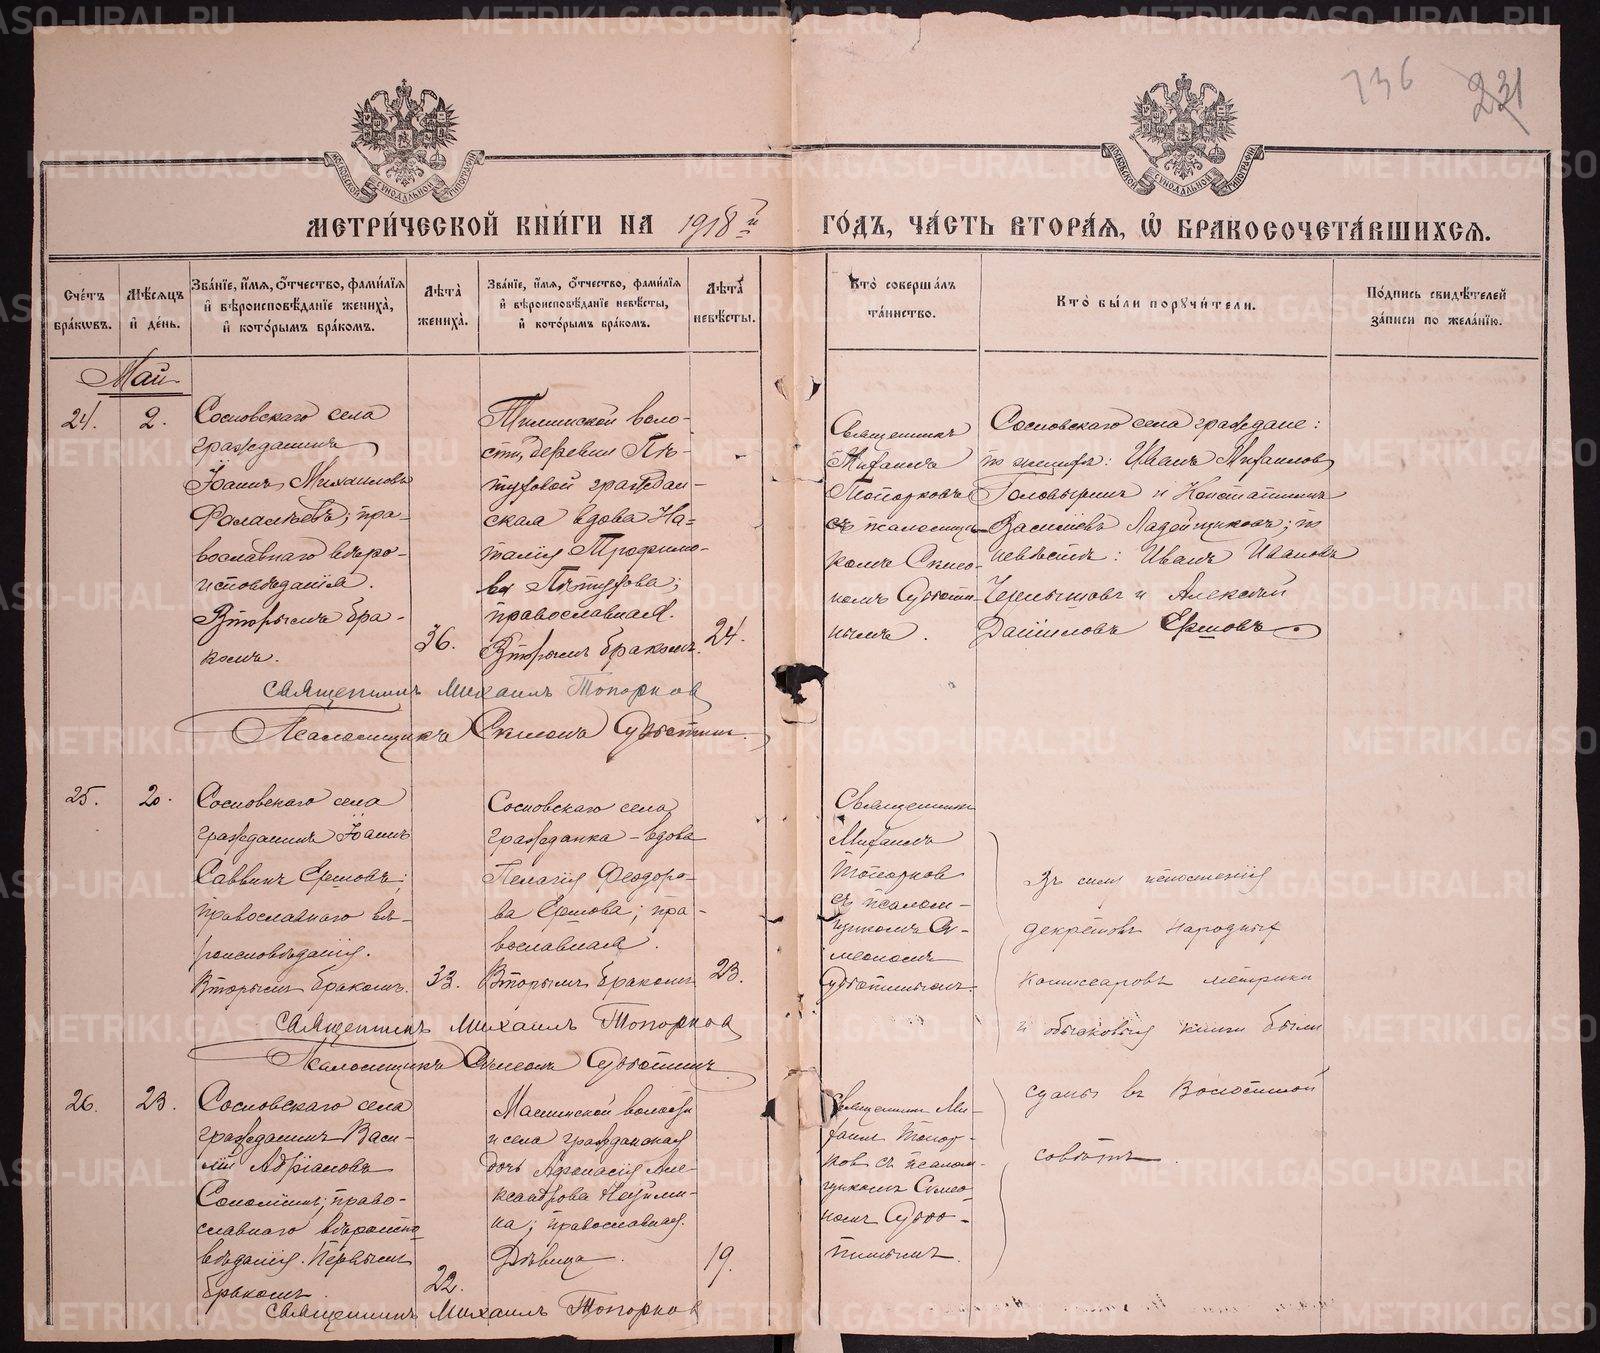 736
231
МЕТРИ́ЧЕСКОЙ КНИ́ГИ НА 1918 й
ГО́ДЪ, ЧА́СТЬ ВТОРА́Я, Ѽ БРАКОСОЧЕТА́ВШИХСЯ.
Сче́тъ бра́кѡвъ.
Мѣ́сяцъ и҆ де́нь.
Зва́нїе, и҆́мя, ѻ҆́тчество, фами́лїя
и҆ вѣроисповѣ́данїе жениха̀,
и҆ кото́рымъ бра́комъ.
Лѣ́та̀ жениха̀.
Зва́нїе, и҆́мя, ѻ҆́тчество, фами́лїя
и҆ вѣроисповѣ́данїе невѣ́сты,
и҆ кото́рымъ бра́комъ.
Лѣ́та̀ невѣ́сты.
Кто̀ соверша́лъ
та́инство.
Кто̀ бы́ли порꙋчи́тели.
По́дпись свидѣ́телей
за́писи по жела́нїю.
Май
24.
2.
Сосновскаго села
гражданинъ
Іоаннъ Михаиловъ
пра-
вославнаго вѣро-
исповѣданія.
Вторымъ бра-
комъ.
36.
воло-
сти, деревни Пѣ-
туховой граждан-
ская вдова На-
талія Трофимо-
ва Пѣтухова;
православная.
Вторымъ бракомъ.
24.
Священникъ
Михаилъ
Топорковъ
съ псаломщи-
комъ Симео-
номъ Субботи-
нымъ.
Сосновскаго села граждане:
по женихѣ: Иванъ Михаиловъ
и Константинъ
Василіевъ Ладейщиковъ; по
невѣстѣ: Иванъ Ивановъ
Чернышовъ и Алексѣй
Даниловъ Ершовъ.
Священникъ Михаилъ Топорков
Псаломщикъ Симеонъ Субботин.
25.
20.
Сосновскаго села
гражданинъ Іоаннъ
Саввинъ Ершовъ;
православнаго вѣ-
роисповѣданія.
Вторымъ бракомъ.
33.
Сосновскаго села
гражданка - вдова
Пелагія Феодоро-
ва Ершова; пра-
вославная.
Вторымъ бракомъ
23.
Священникъ
Михаилъ
Топорков
съ псалом-
щикомъ Си-
меономъ
Субботинымъ.
Въ силу исполненія
декретовъ Народныхъ
Комиссаровъ метрики
и обысковыя книги были
сданы въ Волостной
совѣтъ.
Священникъ Михаилъ Топорков
Псаломщикъ Симеонъ Субботинъ.
26.
23.
Сосновскаго села
гражданинъ Васи-
лій Адріановъ
право-
славнаго вѣроиспо-
вѣданія. Первымъ
бракомъ.
22.
волости
и села гражданская
дочь Афанасія Але-
ксандрова
на; православная.
Дѣвица.
19.
Священникъ Ми-
хаилъ Топор-
ков съ псалом-
щикомъ Симео-
номъ Суббо-
тинымъ.
Священникъ Михаилъ Топорков
METRIKI.GASO-URAL.RU